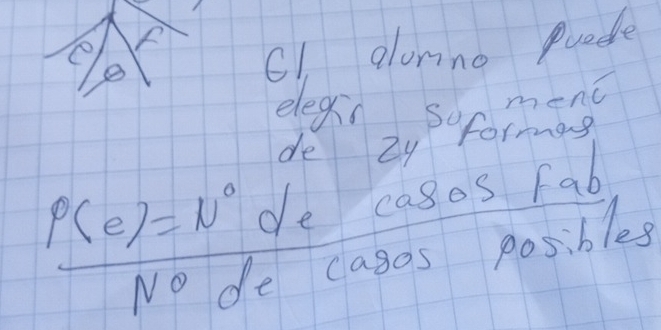 e e f
El alumno puede
elegir su menú
de 24 formas
P(e)=Nº de casos Fab
Nº de casos posibles